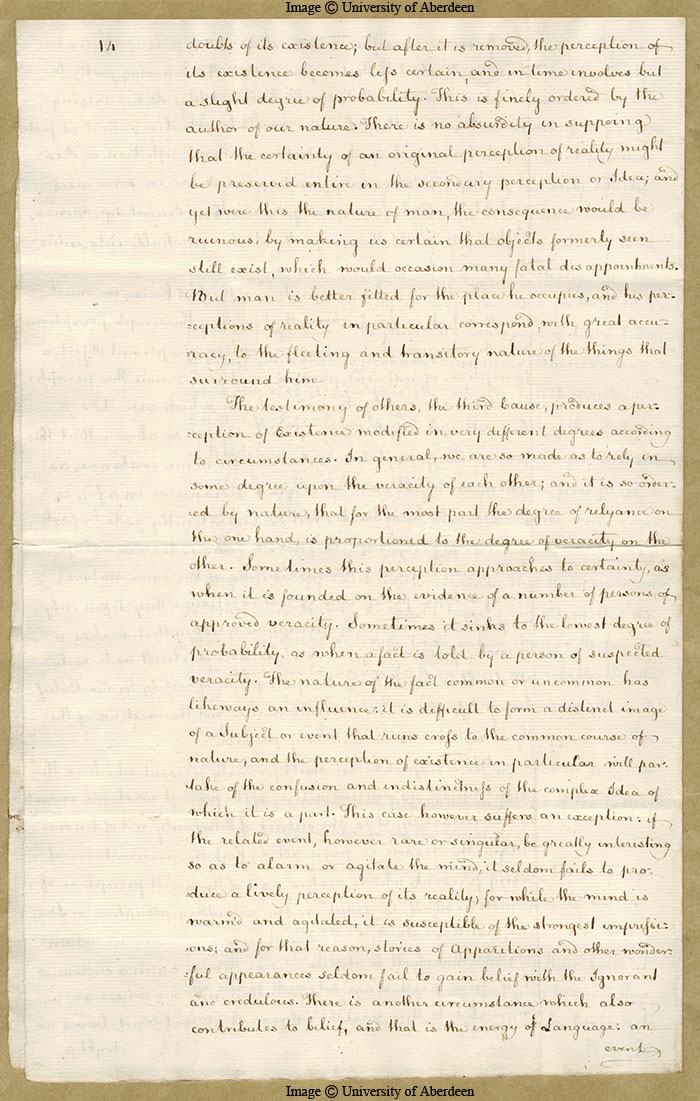 Image © University of Aberdeen
14
doubts of its existence; but after it is removed, the perception of
its existence becomes less certain, and in time involves but
a slight degree of probability. This is finely ordered by the
author of our nature. There is no absurdity in supposing
that the certainty of an original perception of reality might
be preserved entire in the secondary perception or Idea; and
yet were this the nature of man, the consequence would be
ruinous, by making us certain that objects formerly seen
still exist, which would occasion many fatal disappointments.
But man is better fitted for the place he occupies, and his per-
-ceptions of reality in particular correspond, with great accu-
-racy, to the fleeting and transitory nature of the things that
surround him.
The testimony of others, the third Cause, produces a per-
-ception of Existence modified in very different degrees according
to circumstances. In general, we are so made as to rely in
some degree upon the veracity of each other; and it is so order-
-ed by nature, that for the most part the degree of relyance on
the one hand, is proportioned to the degree of veracity on the
other. Sometimes this perception approaches to certainty, as
when it is founded on the evidence of a number of persons of
approved veracity. Sometimes it sinks to the lowest degree of
probability, as when a fact is told by a person of suspected
veracity. The nature of the fact common or uncommon has
likeways an influence: it is difficult to form a distinct image
of a Subject or event that runs cross to the common course of
nature, and the perception of existence in particular will par-
-take of the confusion and indistinctness of the complex Idea of
which it is a part. This case however suffers an exception: if
the related event, however rare or singular, be greatly interesting
so as to alarm or agitate the mind, it seldom fails to pro-
-duce a lively perception of its reality; for while the mind is
warm'd and agitated, it is susceptible of the strongest impressi-
-ons; and for that reason, stories of Apparitions and other wonder-
-ful appearances seldom fail to gain belief with the Ignorant
and credulous. There is another circumstance which also
contributes to belief, and that is the energy of Language: an
event
Image © University of Aberdeen